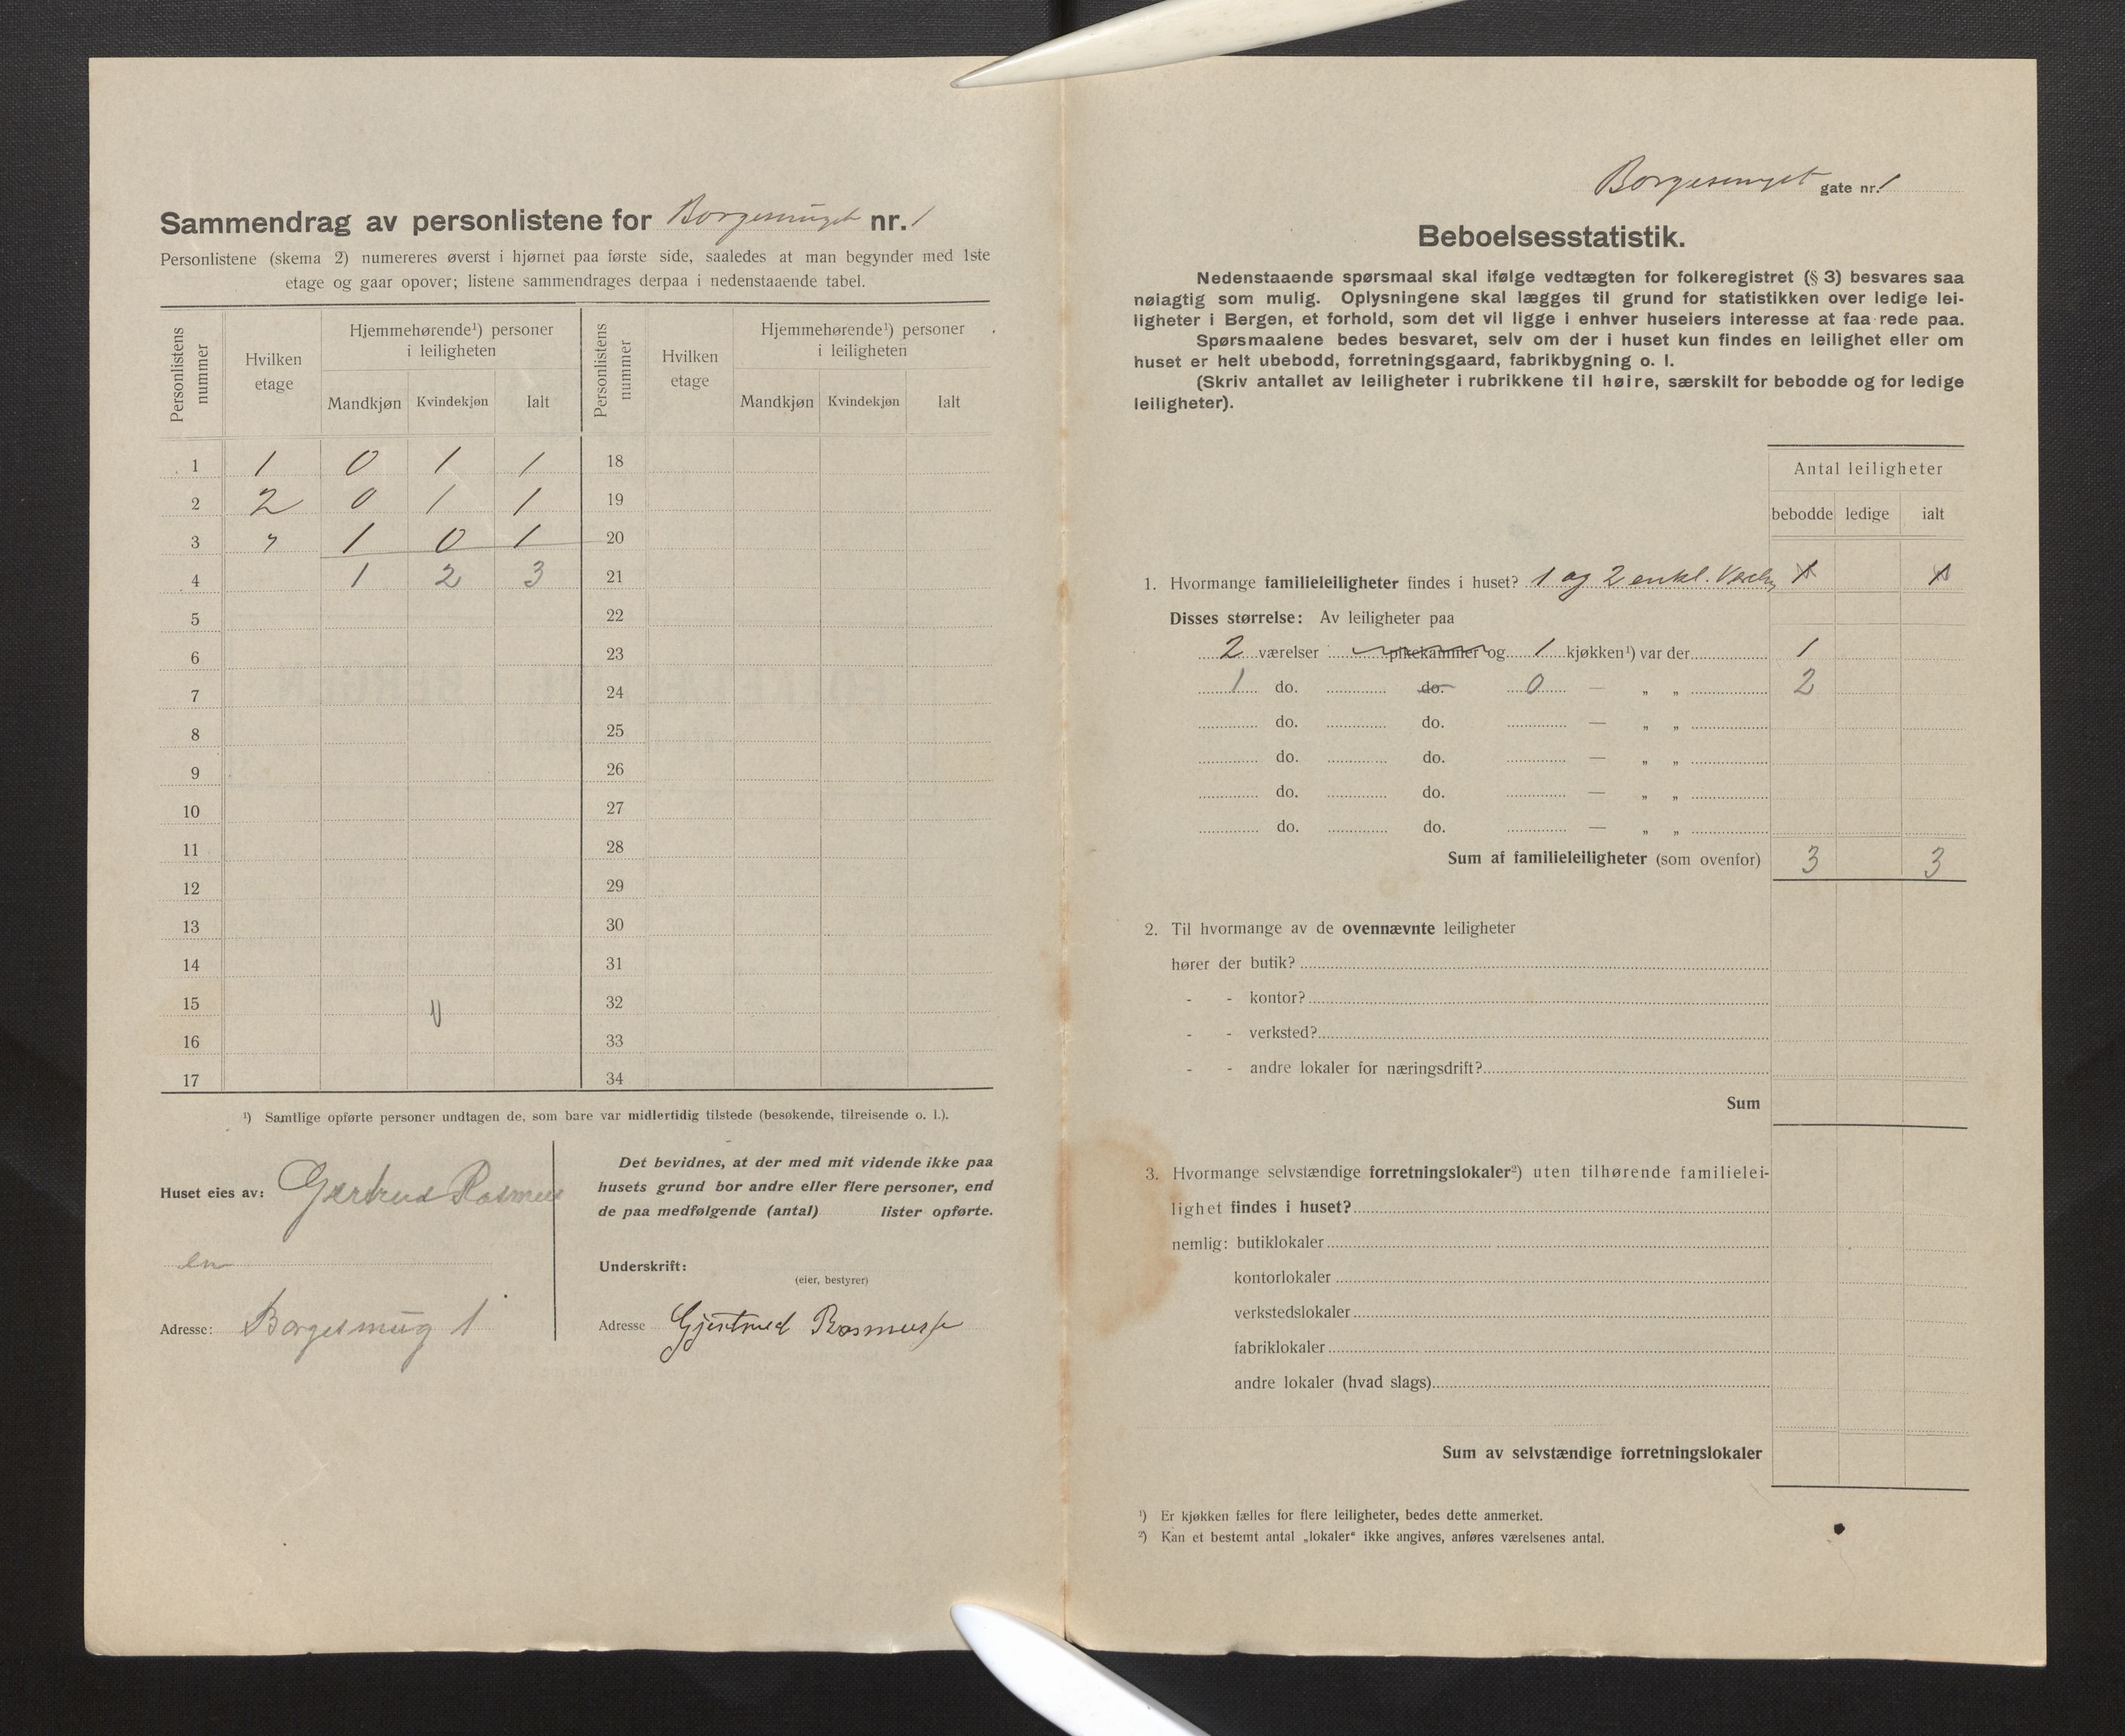 Sammendrag av personlistene for Borgesmuget nr. 1
Personlistene (skema 2) numereres øverst i hjørnet paa første side, saaledes at man begynder med 1ste
etage og gaar opover; listene sammendrages derpaa i nedenstaaende tabel.
Personlistens nummer
Hvilken etage
Hjemmehørende¹) personer i leiligheten
Mandkjøn Kvindekjøn Ialt
Personlistens nummer
Hvilken etage
Hjemmehørende¹) personer i leiligheten
Mandkjøn Kvindekjøn Ialt
1 1 0 1 1 18
2 2 0 1 1 19
3 " 1 0 1 20
4 1 2 3 21
5 22
6 23
7 24
8 25
9 26
10 27
11 28
12 29
13 30
14 31
15 32
16 33
17 34
¹) Samtlige opførte personer undtagen de, som bare var midlertidig tilstede (besøkende, tilreisende o. l.).
Huset eies av: Gertrud Rasmus
en
Adresse: Borgesmug 1
Det bevidnes, at der med mit vidende ikke paa
husets grund bor andre eller flere personer, end
de paa medfølgende (antal) lister opførte.
Underskrift:
(eier, bestyrer)
Adresse Gjertrud Rasmussen
Borgesmuget gate nr. 1
Beboelsesstatistik.
Nedenstaaende spørsmaal skal ifølge vedtægten for folkeregistret (§ 3) besvares saa
nøiagtig som mulig. Oplysningene skal lægges til grund for statistikken over ledige lei-
ligheter i Bergen, et forhold, som det vil ligge i enhver huseiers interesse at faa rede paa.
Spørsmaalene bedes besvaret, selv om der i huset kun findes en leilighet eller om
huset er helt ubebodd, forretningsgaard, fabrikbygning o. l.
(Skriv antallet av leiligheter i rubrikkene til høire, særskilt for bebodde og for ledige
leiligheter).
Antal leiligheter
bebodde ledige ialt
1. Hvormange familieleiligheter findes i huset? 1 og 2 enkl.
Disses størrelse: Av leiligheter paa
2 værelser pikekammer og 1 kjøkken¹) var der 1
1 do. do. 0 — „ „ 2
do. do. — „ „
do. do. — „ „
do. do. — „ „
do. do. — „ „
Sum af familieleiligheter (som ovenfor) 3 3
2. Til hvormange av de ovennævnte leiligheter
hører der butik?
- - kontor?
- - verksted?
- - andre lokaler for næringsdrift?
Sum
3. Hvormange selvstændige forretningslokaler²) uten tilhørende familielei-
lighet findes i huset?
nemlig: butiklokaler
kontorlokaler
verkstedslokaler
fabriklokaler
andre lokaler (hvad slags)
Sum av selvstændige forretningslokaler
¹) Er kjøkken fælles for flere leiligheter, bedes dette anmerket.
²) Kan et bestemt antal „lokaler“ ikke angives, anføres værelsenes antal.